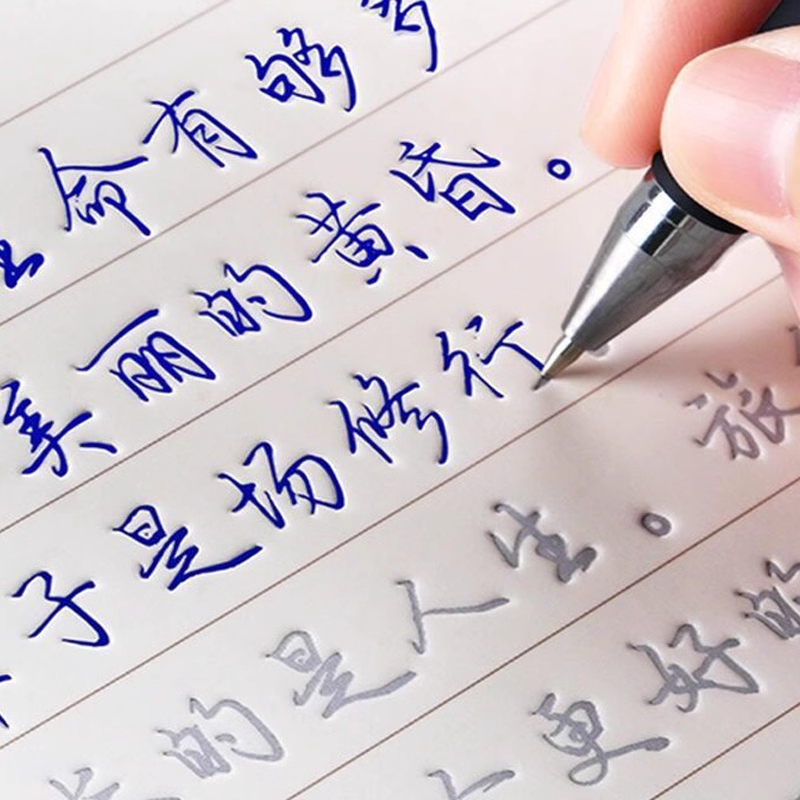 命有够多
美丽的黄昏。
子是场修行
旅
的是人生。
更好的